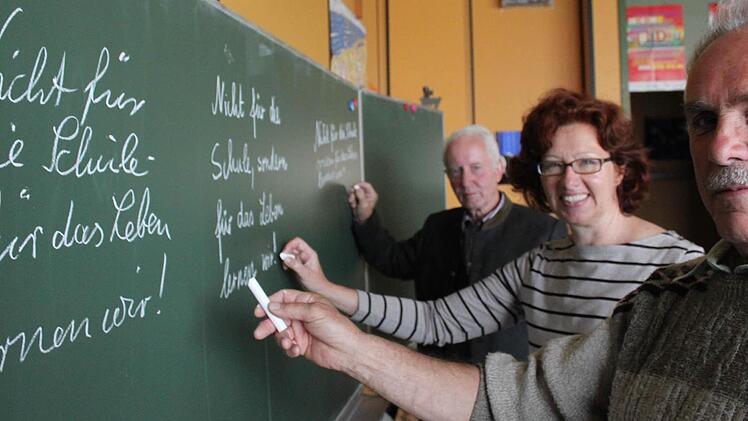 Nicht für
die Schule
für das Leben
lernen wir!
Nicht für die
Schule, sondern
für das Leben
lernen wir!
Nicht für die Schule
sondern für das Leben